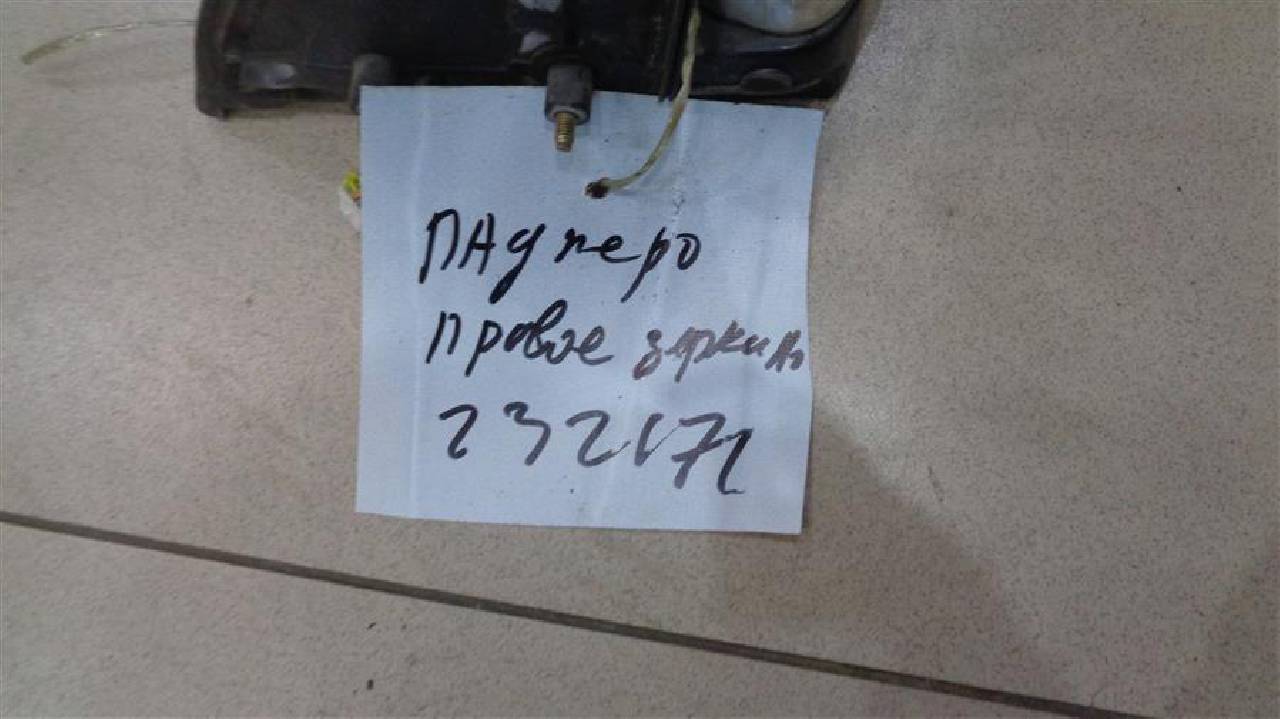 ПАджеро
правое зеркало
232172